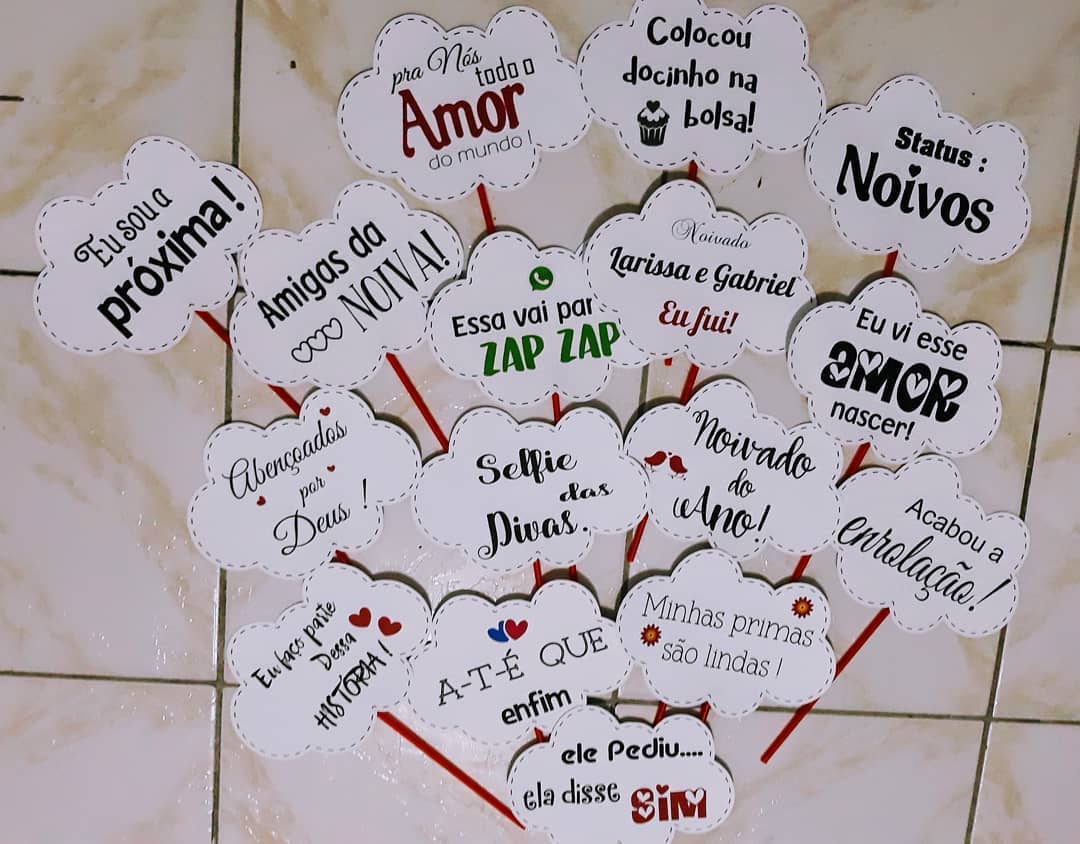 pra Nós
todo o
Amor
do mundo !
Colocou
docinho na
bolsa!
Status :
Noivos
Eu sou a
próxima!
Amigas da
NOIVA!
Essa vai par
ZAP ZAP
Noivado
Larissa e Gabriel
Eu fui!
Eu vi esse
AMOR
nascer!
Abençoados
por
Deus !
Selfie
das
Divas.
Noivado
do
Ano!
Acabou a
enrolação!
Eu faço parte
Dessa
HISTÓRIA!
A-T-É QUE
enfim
Minhas primas
são lindas !
ele Pediu....
ela disse SIM